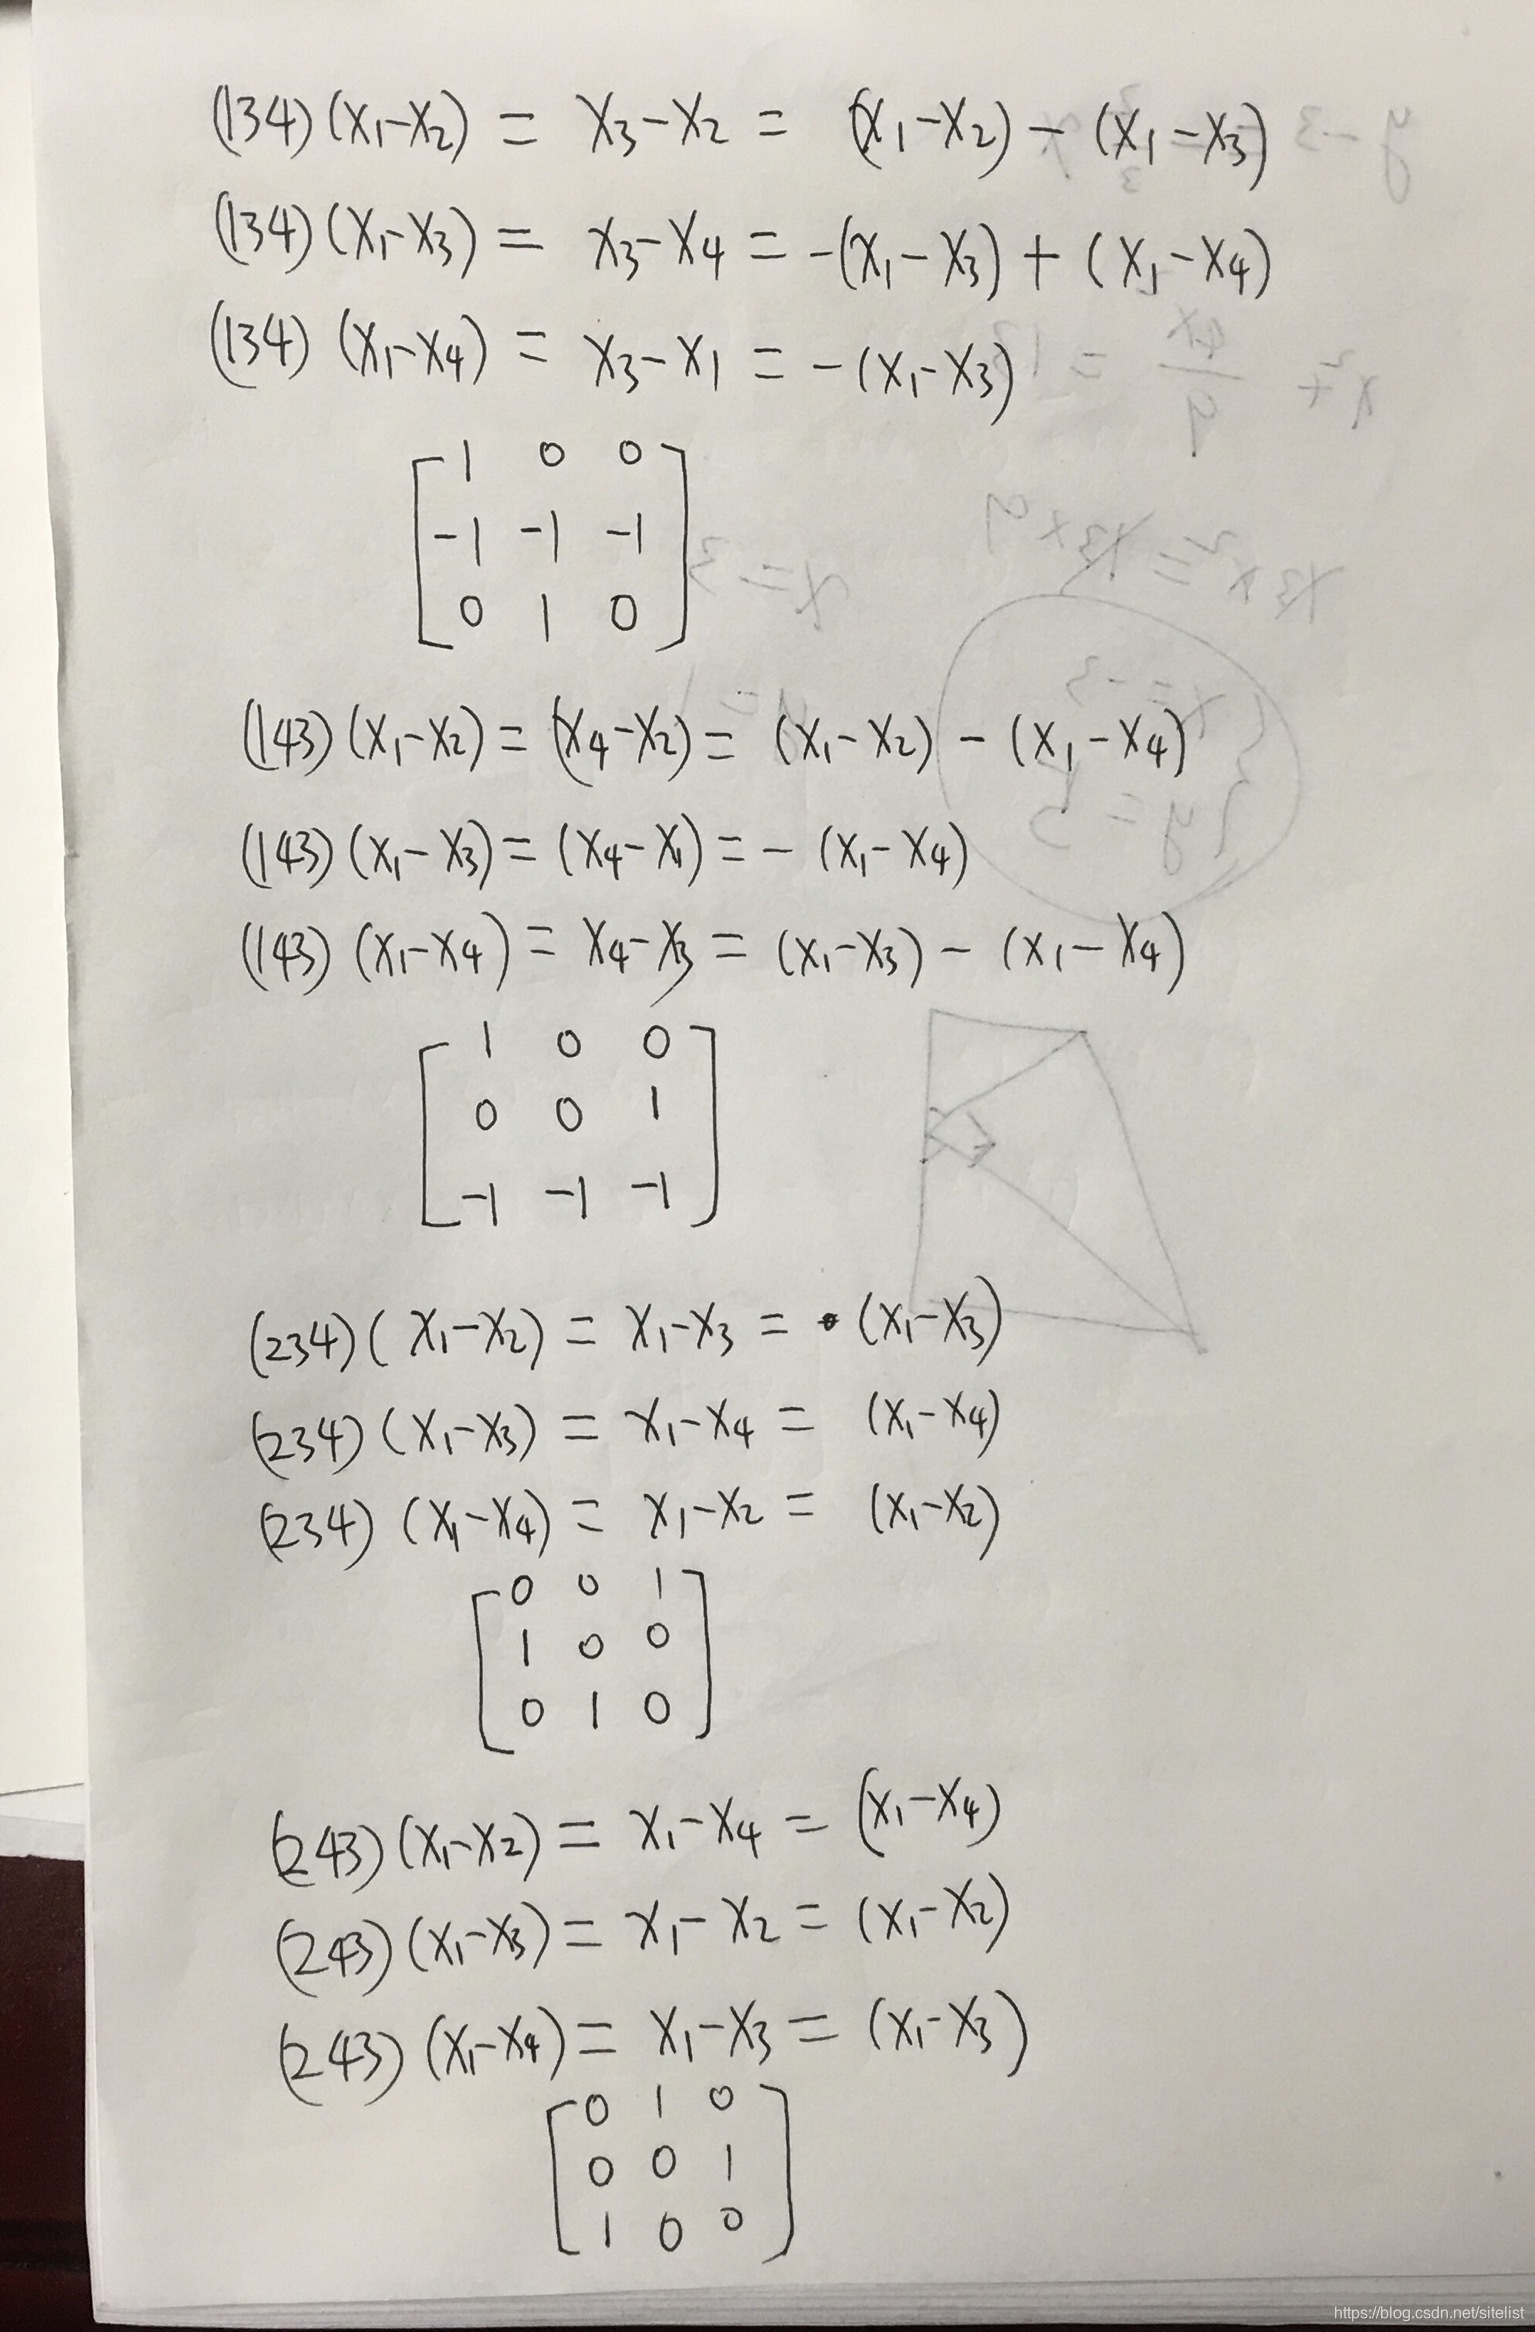 (134)(x₁-x₂) = x₃-x₂ = (x₁-x₂)-(x₁-x₃)
(134)(x₁-x₃) = x₃-x₄ = -(x₁-x₃)+(x₁-x₄)
(134)(x₁-x₄) = x₃-x₁ = -(x₁-x₃)
1 0 0
-1 -1 -1
0 1 0
(143)(x₁-x₂) = (x₄-x₂) = (x₁-x₂)-(x₁-x₄)
(143)(x₁-x₃) = (x₄-x₁) = -(x₁-x₄)
(143)(x₁-x₄) = x₄-x₃ = (x₁-x₃)-(x₁-x₄)
1 0 0
0 0 1
-1 -1 -1
(234)(x₁-x₂) = x₁-x₃ = (x₁-x₃)
(234)(x₁-x₃) = x₁-x₄ = (x₁-x₄)
(234)(x₁-x₄) = x₁-x₂ = (x₁-x₂)
0 0 1
1 0 0
0 1 0
(243)(x₁-x₂) = x₁-x₄ = (x₁-x₄)
(243)(x₁-x₃) = x₁-x₂ = (x₁-x₂)
(243)(x₁-x₄) = x₁-x₃ = (x₁-x₃)
0 1 0
0 0 1
1 0 0
https://blog.csdn.net/sitelist